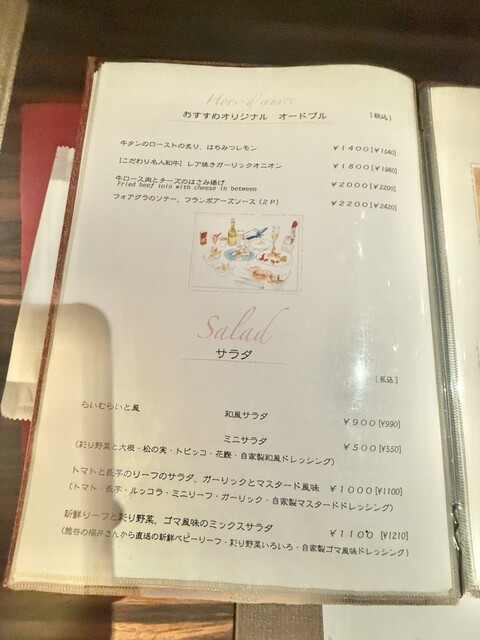 Hors-d'œuvre
おすすめオリジナル オードブル [税込]
牛タンのローストの炙り、はちみつレモン ￥1400[￥1540]
[こだわり名人和牛] レア焼きガーリックオニオン ￥1800[￥1980]
牛ロース肉とチーズのはさみ揚げ ￥2000[￥2200]
Fried beef loin with cheese in between
フォアグラのソテー、フランボアーズソース(2P) ￥2200[￥2420]
Salad
サラダ
[税込]
らいむらいと風 和風サラダ ￥900[¥990]
ミニサラダ ￥500[¥550]
(彩り野菜と大根・松の実・トビッコ・花鰹・自家製和風ドレッシング)
トマトと長芋のリーフのサラダ、ガーリックとマスタード風味 ￥1000[¥1100]
(トマト・長芋・ルッコラ・ミニリーフ・ガーリック・自家製マスタードドレッシング)
新鮮リーフと彩り野菜、ゴマ風味のミックスサラダ ￥1100[¥1210]
(越谷の福井さんから直送の新鮮ベビーリーフ・彩り野菜いろいろ・自家製ゴマ風味ドレッシング)